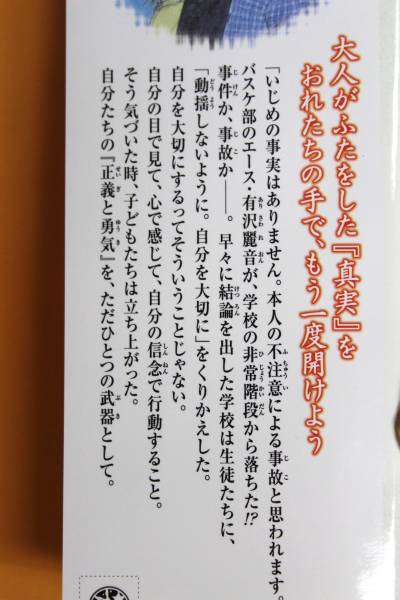 大人がふたをした『真実』を
おれたちの手で、もう一度開けよう
「いじめの事実はありません。本人の不注意による事故と思われます。
バスケ部のエース・有沢麗音が、学校の非常階段から落ちた!?
事件か、事故か――。早々に結論を出した学校は生徒たちに、
「動揺しないように。自分を大切に」をくりかえした。
自分を大切にするってそういうことじゃない。
自分の目で見て、心で感じて、自分の信念で行動すること。
そう気づいた時、子どもたちは立ち上がった。
自分たちの『正義と勇気』を、ただひとつの武器として。